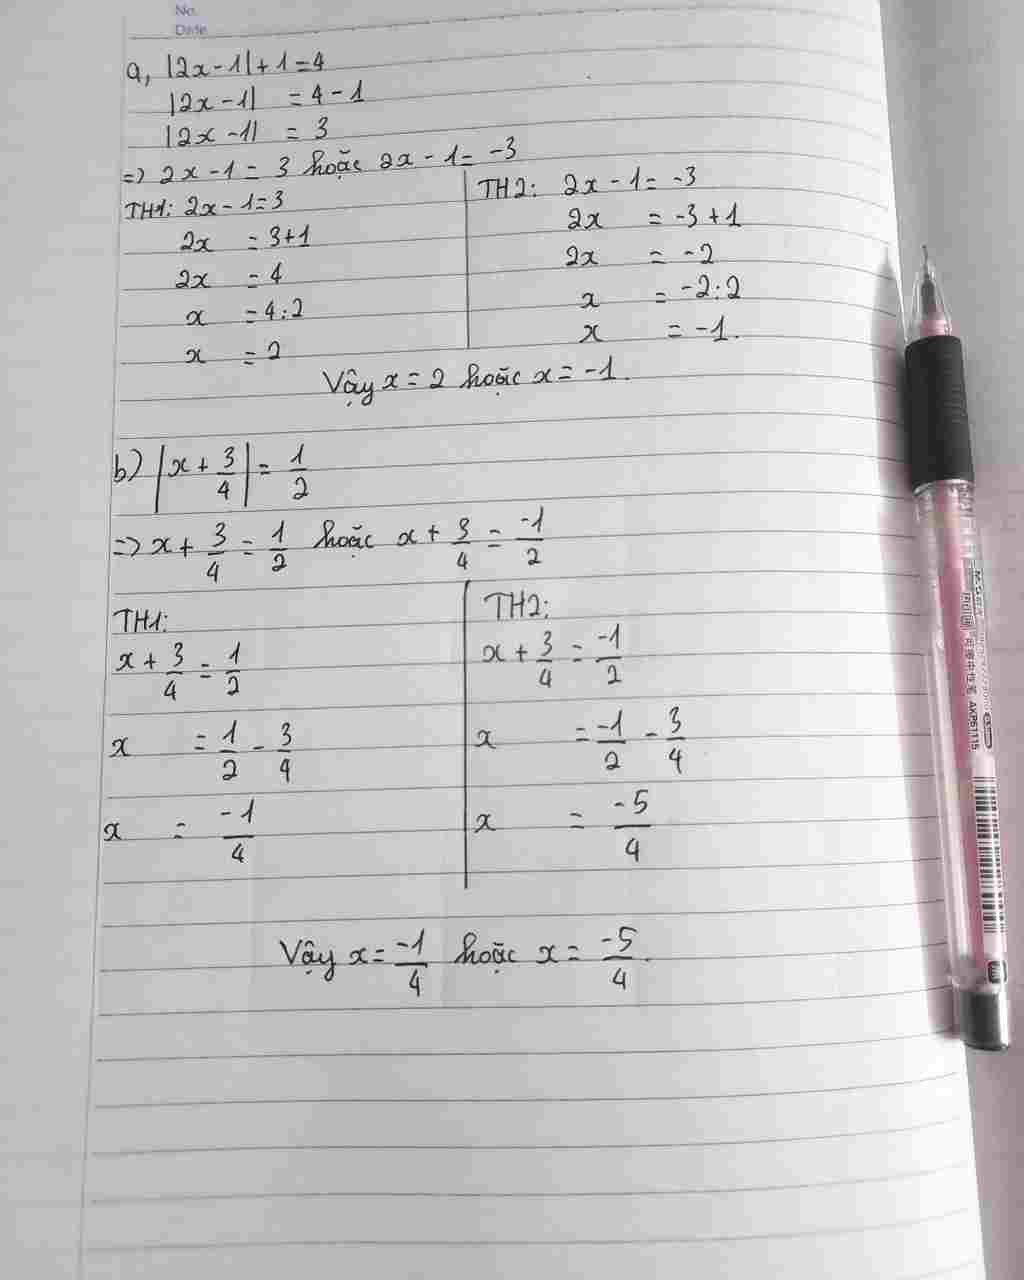 No.
Date
a, |2x-1|+1=4
|2x-1| = 4-1
|2x-1| = 3
=> 2x-1 = 3 hoặc 2x-1 = -3
TH1: 2x-1=3
2x = 3+1
2x = 4
x = 4:2
x = 2
TH2: 2x-1=-3
2x = -3+1
2x = -2
x = -2:2
x = -1.
Vậy x=2 hoặc x=-1.
b) |x + 3/4| = 1/2
=> x + 3/4 = 1/2 hoặc x + 3/4 = -1/2
TH1:
x + 3/4 = 1/2
x = 1/2 - 3/4
x = -1/4
TH2:
x + 3/4 = -1/2
x = -1/2 - 3/4
x = -5/4
Vậy x = -1/4 hoặc x = -5/4.
AKP61115